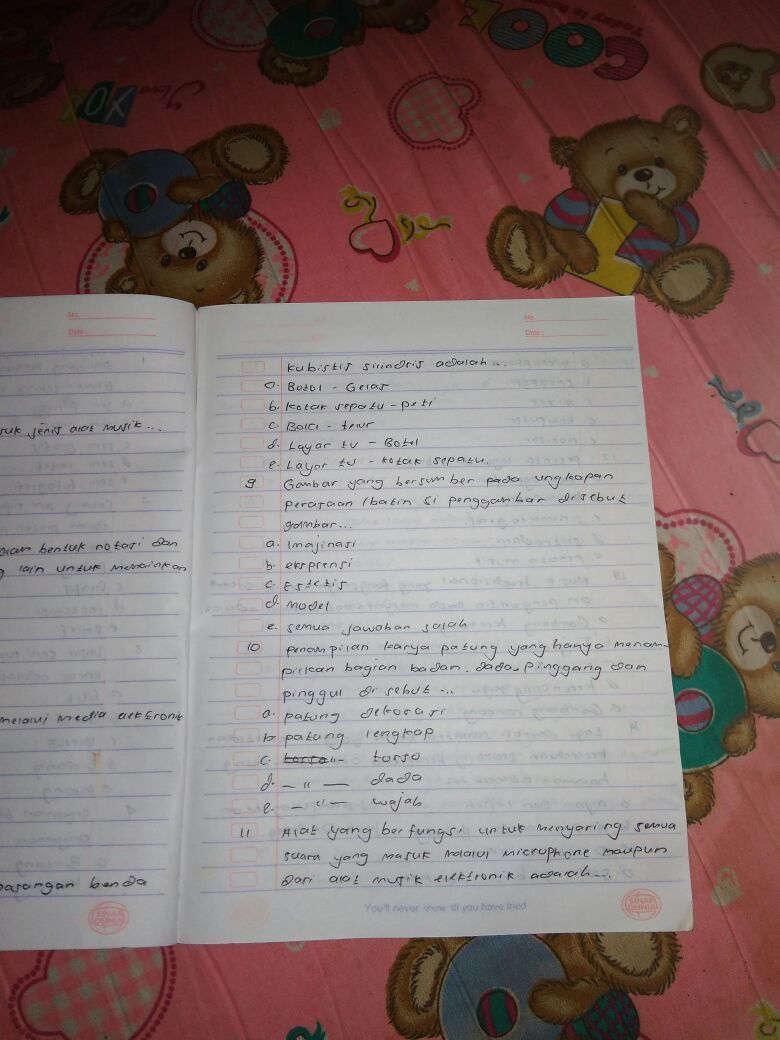 COOK
Today is
I love
YOU
No.
Date :
suk jenis alat musik...
bentuk notasi dan
lain untuk memainkan
melalui media elektronik
pasangan benda
SINAR DUNIA
No.
Date :
kubistis silindris adalah...
a. Botol - Gelas
b. kotak sepatu - peti
c. Bola - telur
d. Layar tv - Botol
e. Layar tv - kotak sepatu.
9 Gambar yang bersumber pada ungkapan
perasaan /batin si penggambar disebut
gambar...
a. Imajinasi
b. eksprensi
c. Estetis
d. model
e. semua jawaban salah
10 penampilan karya patung yang hanya menam-
pilkan bagian badan, dada, pinggang dan
pinggul di sebut...
a. patung dekorasi
b. patung lengkap
c. torso
d. — " — dada
e. — " — wajah
11 Alat yang berfungsi untuk menyaring semua
suara yang masuk melalui microphone maupun
dari alat musik elektronik adalah...
You'll never know till you have tried
SINAR DUNIA